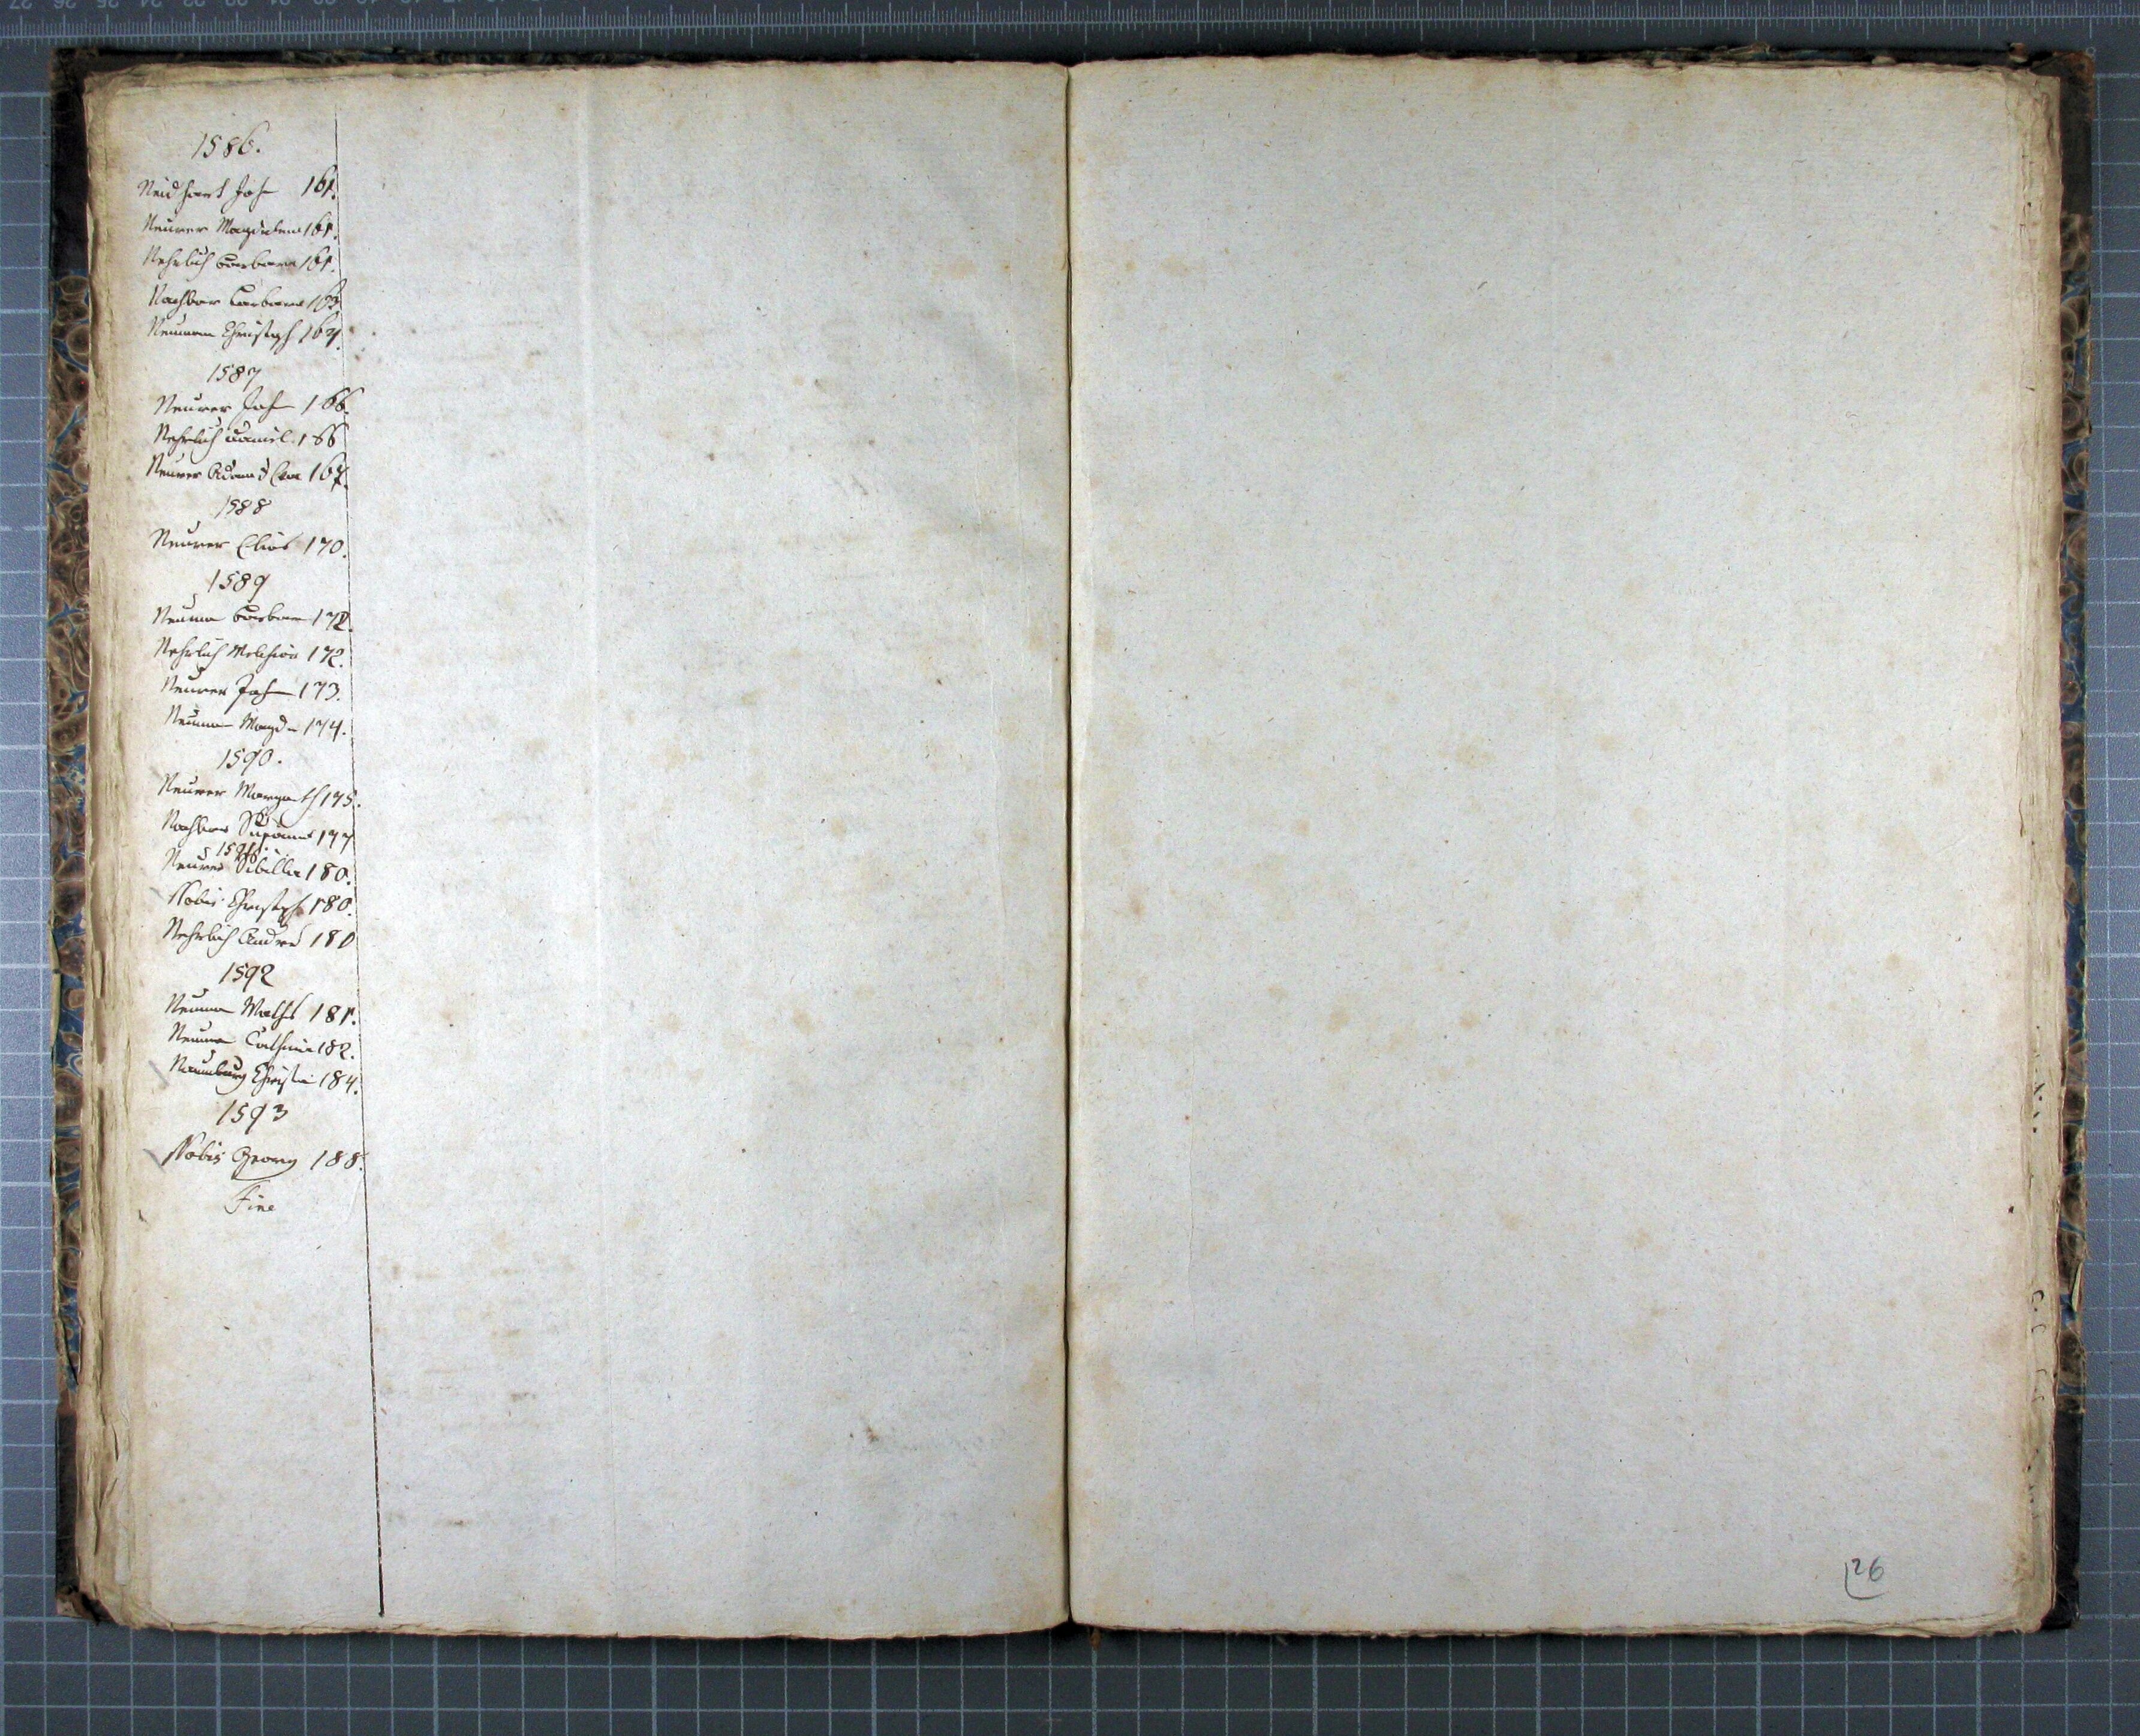 1586.
Neidhart Joh 161.
Neurer Magdalena 161.
Nehrlich Barbara 161.
Nachbar Barbara 163
Neuman Christoph 164.
1587
Neurer Joh 166.
Nehrlich Daniel. 166
Neurer Adam d Eva 167.
1588
Neurer Elias 170.
1589
Neuma Barbara 172.
Nehrlich Melchior 172.
Neurer Joh 173.
Neuman Magd 174.
1590.
Neurer Margreth 175.
Nachbar Susanna 177
1591.
Neurer Sibilla 180.
Nobis Christoph 180.
Nehrlich Andre 180
1592
Neuman Maths 181.
Neuman Catharina 182.
Naumburg Christin 184.
1593
Nobis Georg 188.
Fine
26